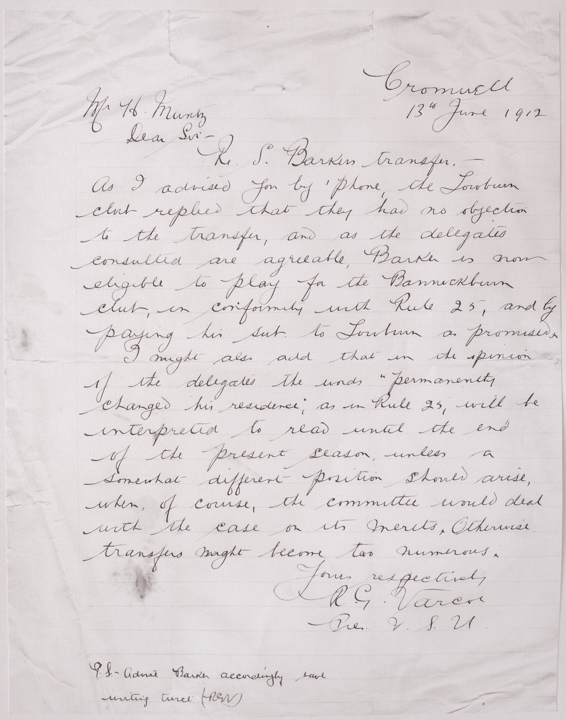 Cromwell
13th June 1912
Mr H. Muntz
Dear Sir-
Re. S. Barker's transfer. —
As I advised you by 'phone, the Lowburn
club replied that they had no objection
to the transfer, and as the delegates
consulted are agreeable, Barker is now
eligible to play for the Bannockburn
club, in conformity with Rule 25, and by
paying his sub. to Lowburn as promised.
I might also add that in the opinion
of the delegates the words "permanently
changed his residence", as in Rule 25, will be
interpreted to read until the end
of the present season, unless a
somewhat different position should arise,
when, of course, the committee would deal
with the case on its merits. Otherwise
transfers might become too numerous.
Yours respectively
R G. Varcoe
Pres. V. S. U.
P.S- Advise Barker accordingly save
writing twice (RGV)